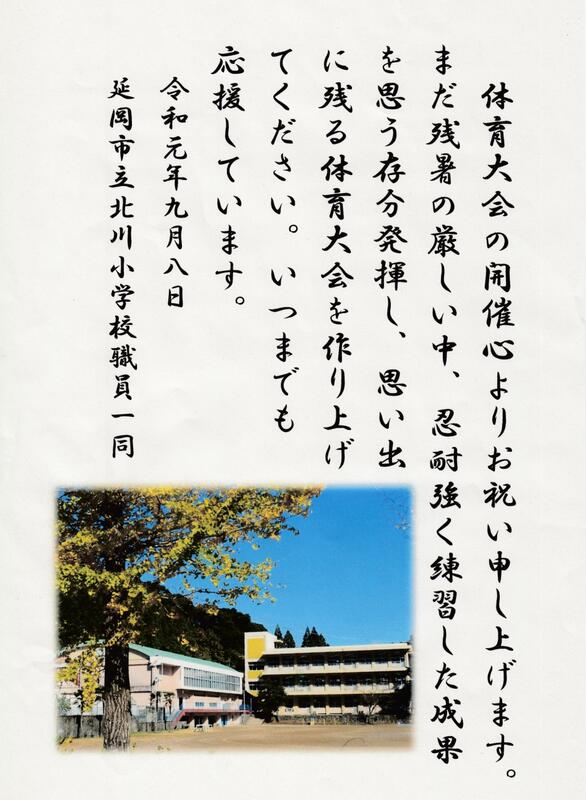 体育大会の開催心よりお祝い申し上げます。
まだ残暑の厳しい中、忍耐強く練習した成果
を思う存分発揮し、思い出
に残る体育大会を作り上げ
てください。いつまでも
応援しています。
令和元年九月八日
延岡市立北川小学校職員一同